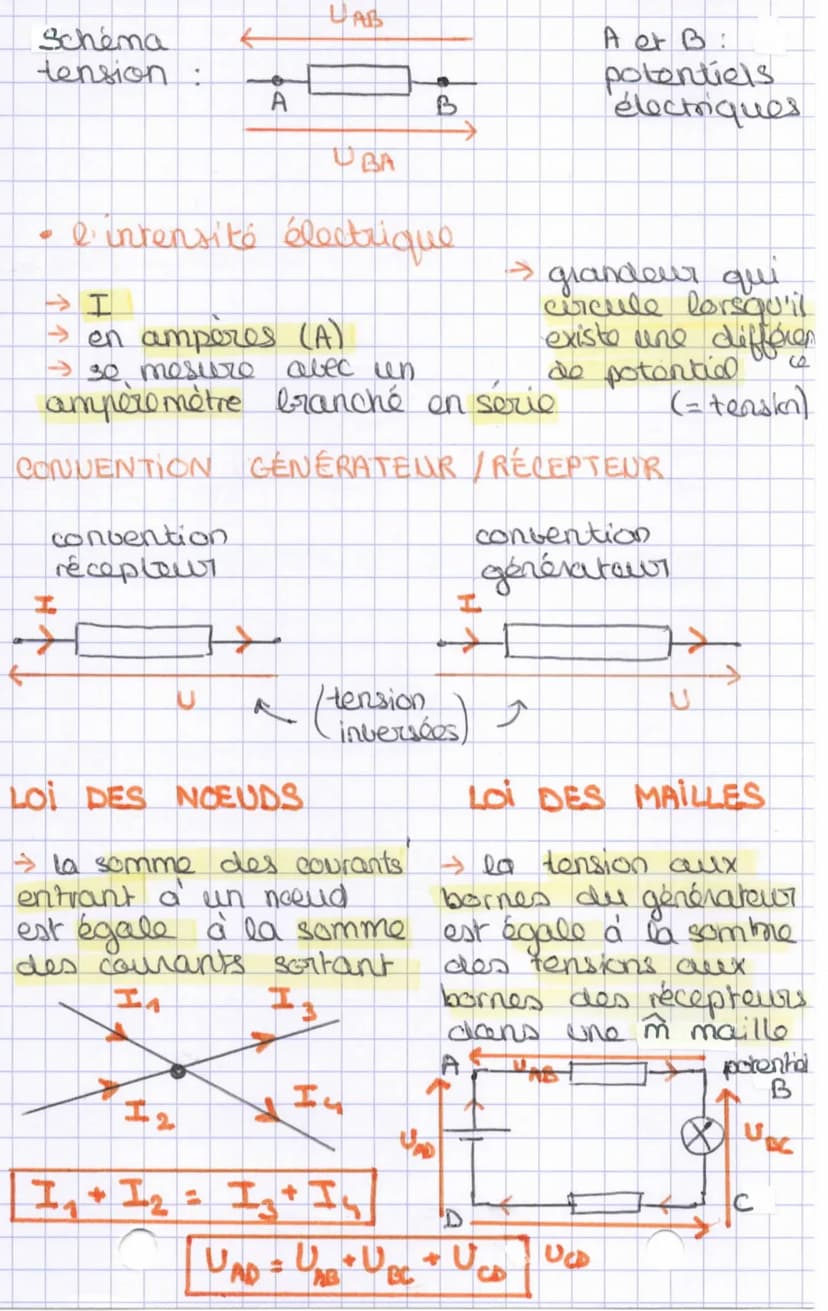 U AB
Schéma
tension :
A B
U BA
A et B :
potentiels
électriques
• l'intensité électrique
→ I
→ en ampères (A)
→ se mesure avec un
ampèremètre branché en série
→ grandeur qui
circule lorsqu'il
existe une différence
de potentiel
(= tension)
CONVENTION GÉNÉRATEUR / RÉCEPTEUR
convention
récepteur
I
U
convention
générateur
I
U
(tension
inversées)
LOi DES NŒUDS
→ la somme des courants
entrant à un nœud
est égale à la somme
des courants sortant
I1 I3
I2 I4
I1 + I2 = I3 + I4
LOi DES MAiLLES
→ la tension aux
bornes du générateur
est égale à la somme
des tensions aux
bornes des récepteurs
dans une m̂ maille
A UAB potentiel
B
UAD UBC
D C
UCD
UAD = UAB + UBC + UCD